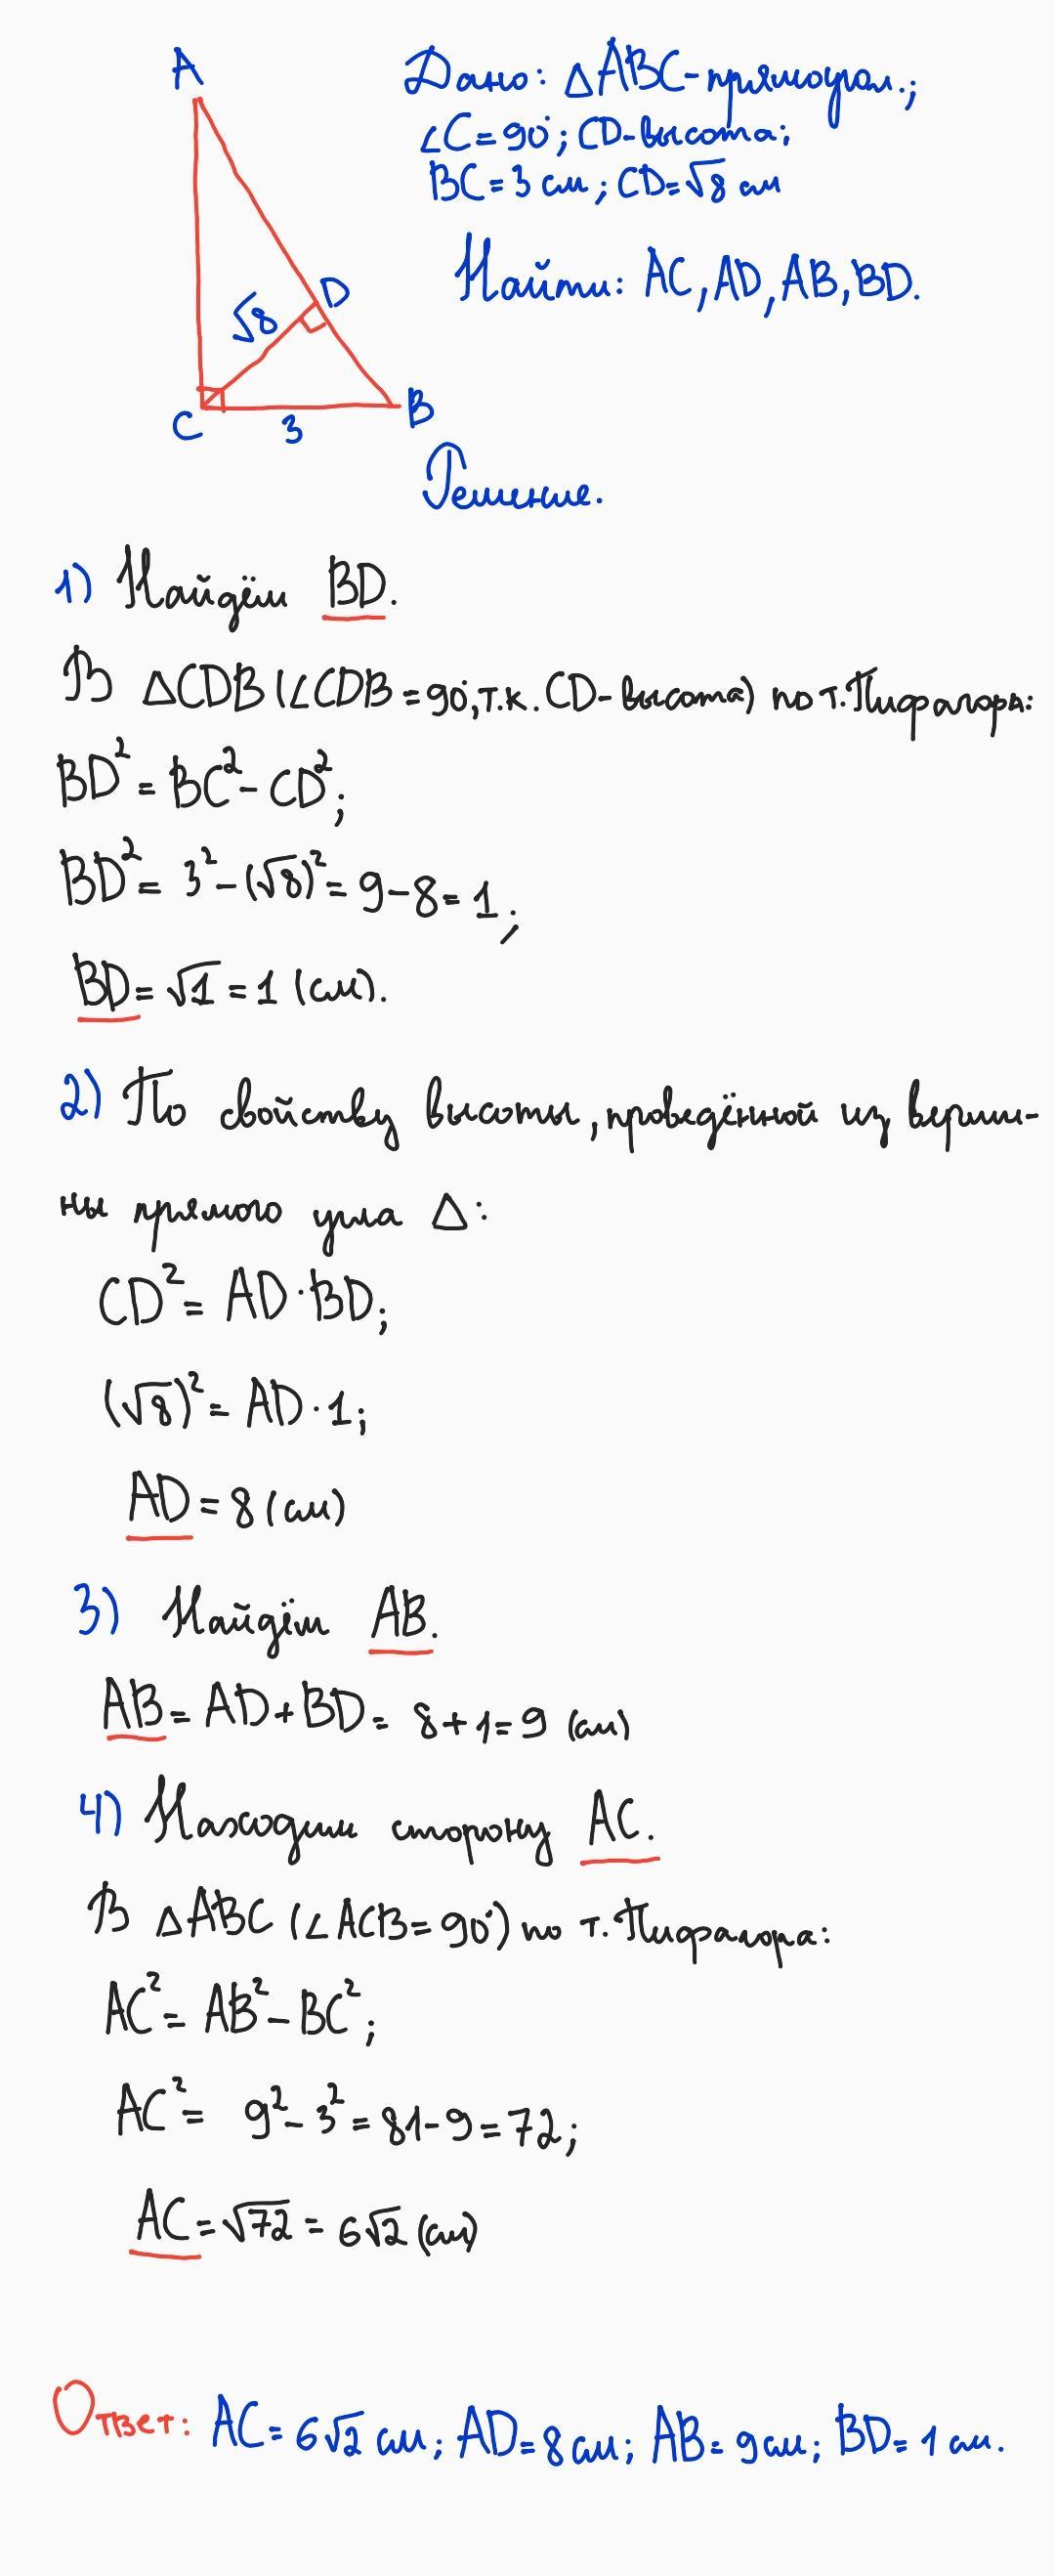 A
Дано: △ABC-прямоугол.;
∠C=90°; CD-высота;
BC=3 см; CD=√8 см
Найти: AC, AD, AB, BD.
D
√8
C
3
B
Решение.
1) Найдём BD.
В △CDB (∠CDB=90°, т.к. CD-высота) по т. Пифагора:
BD²=BC²-CD²;
BD²=3²-(√8)²=9-8=1;
BD=√1=1 (см).
2) По свойству высоты, проведённой из верши-
ны прямого угла △:
CD²=AD·BD;
(√8)²=AD·1;
AD=8 (см)
3) Найдём AB.
AB=AD+BD=8+1=9 (см)
4) Находим сторону AC.
В △ABC (∠ACB=90°) по т. Пифагора:
AC²=AB²-BC²;
AC²=9²-3²=81-9=72;
AC=√72=6√2 (см)
Ответ: AC=6√2 см; AD=8 см; AB=9 см; BD=1 см.